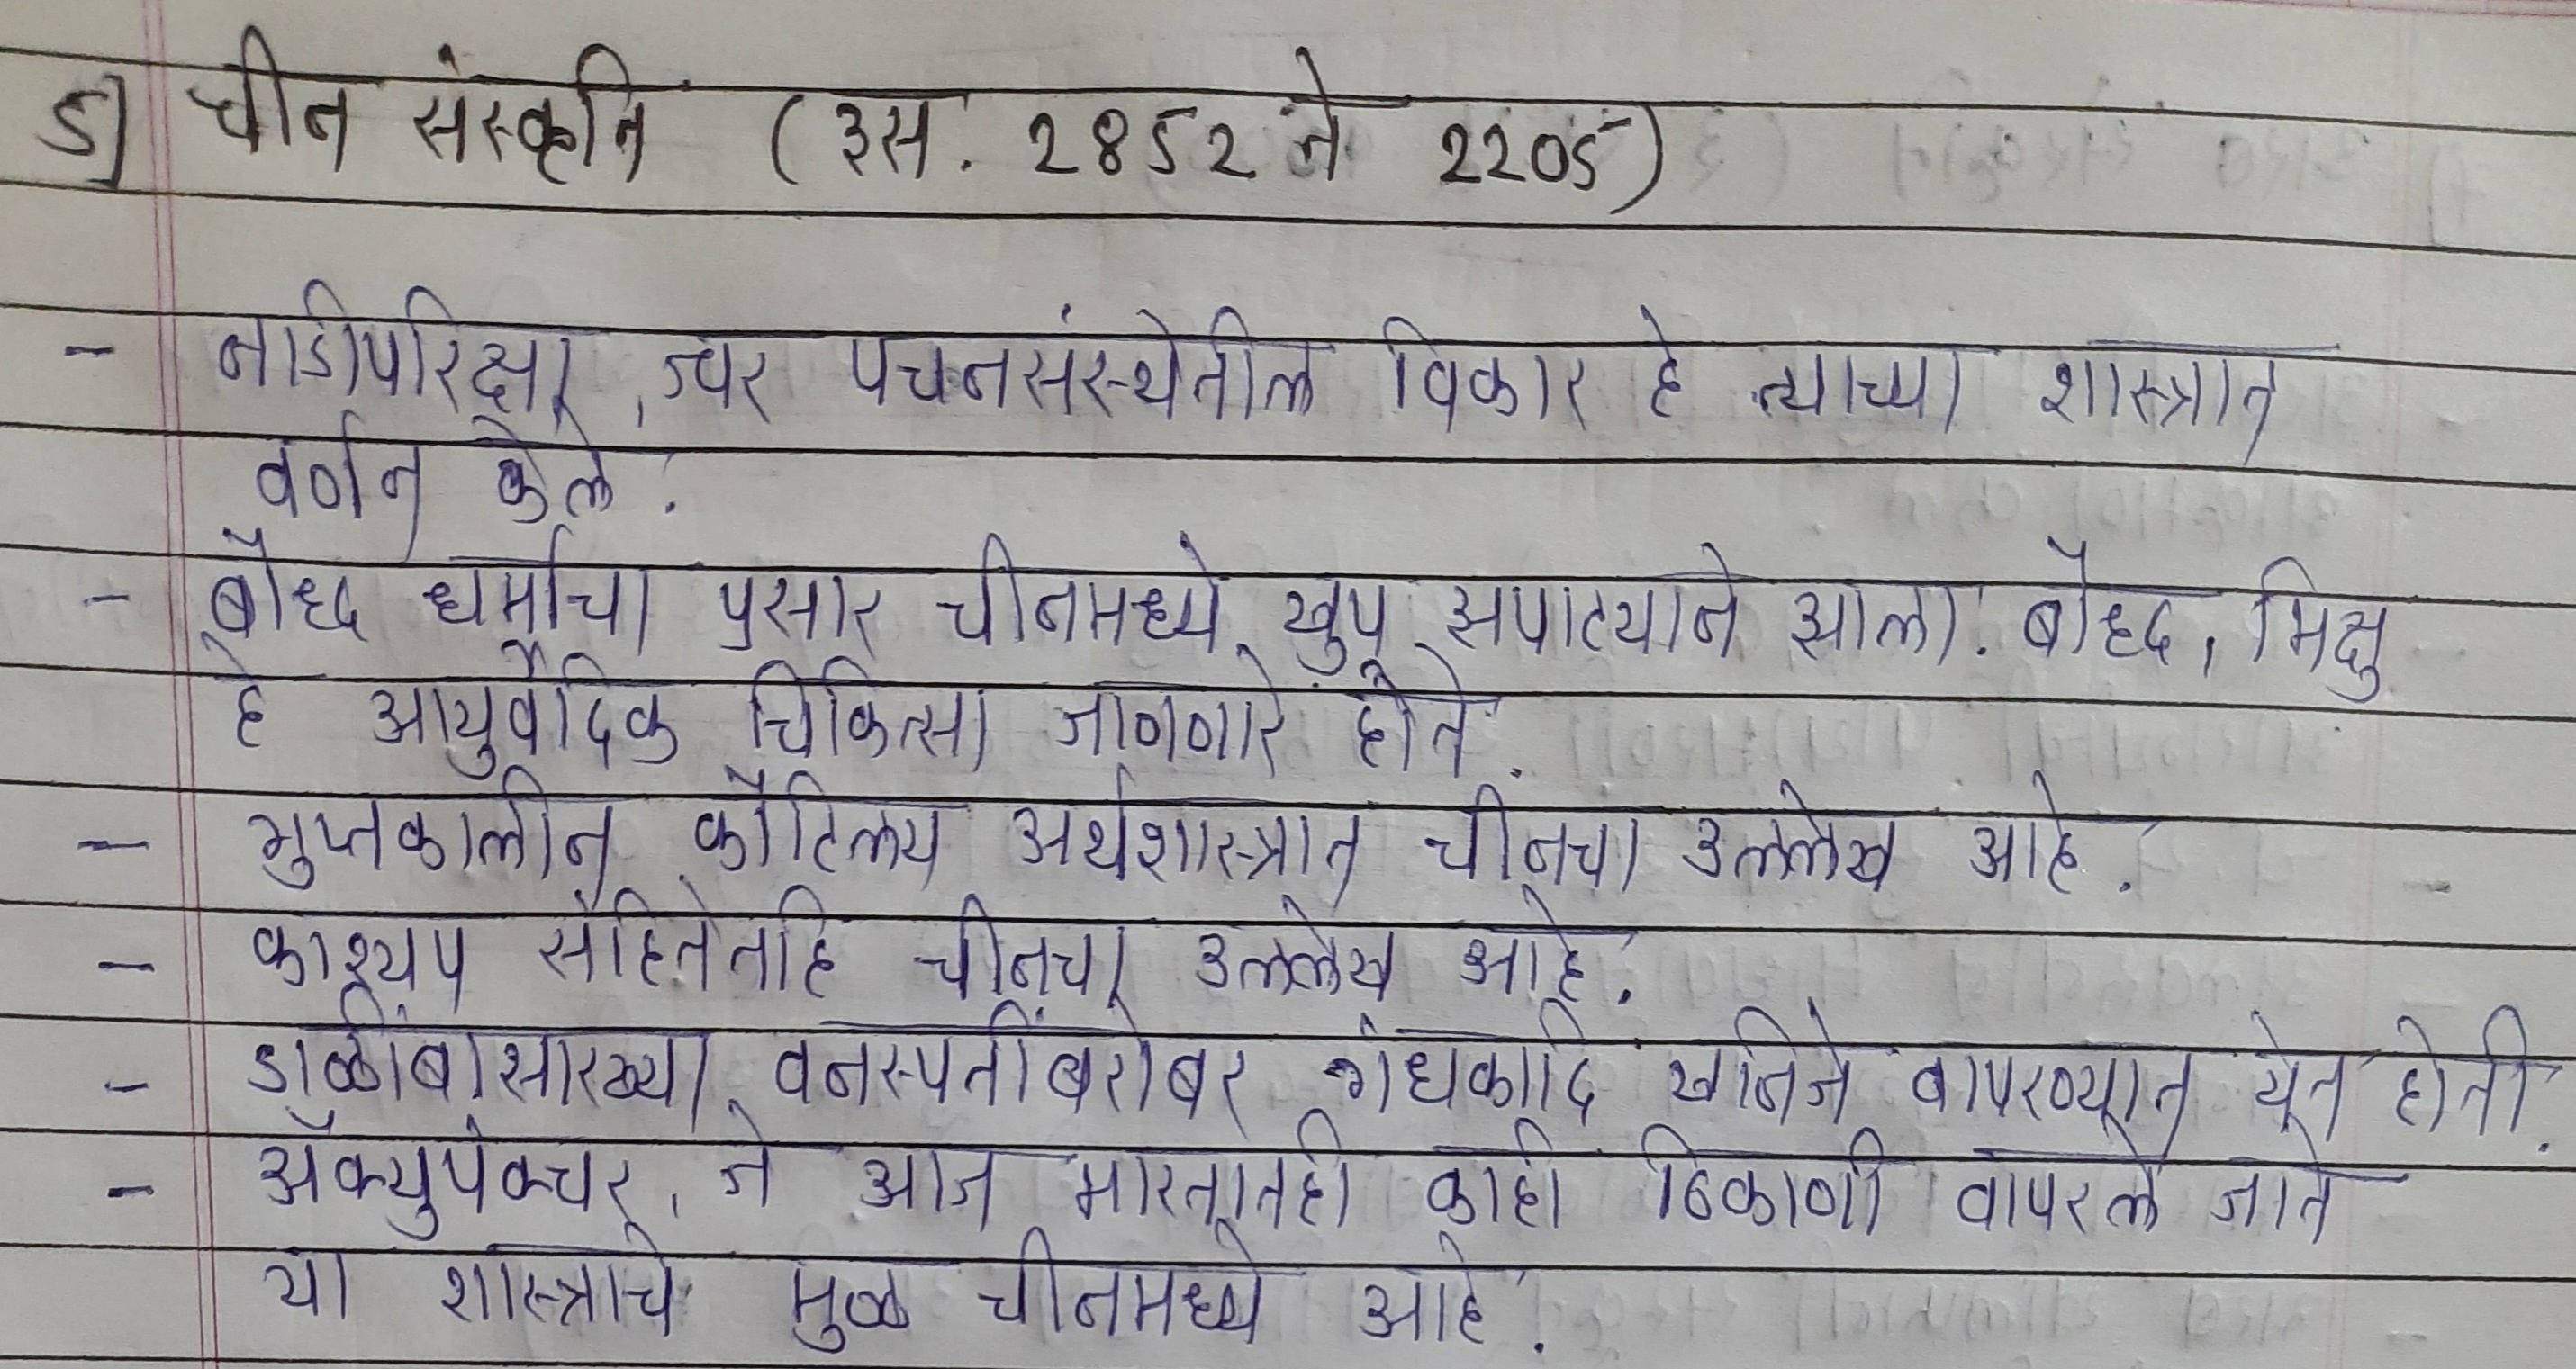 5] चीन संस्कृति (इस. 2852 ते 2205)
- नाडीपरिक्षा, ज्वर पचनसंस्थेतील विकार हे त्याच्या शास्त्रात
वर्णन केले.
- बौध्द धर्माचा प्रसार चीनमध्ये खुप झपाट्याने झाला. बौध्द, भिक्षु
हे आयुर्वेदिक चिकित्सा जाणणारे होते.
- गुप्तकालीन कौटिल्य अर्थशास्त्रात चीनचा उल्लेख आहे.
- काश्यप संहितेतहि चीनचा उल्लेख आहे.
- डाळींबासारख्या वनस्पतींबरोबर गंधकादि खनिजे वापरण्यात येत होती.
- अॅक्युपंक्चर, जे आज भारतातही काही ठिकाणी वापरले जाते
या शास्त्राचे मुळ चीनमध्ये आहे.